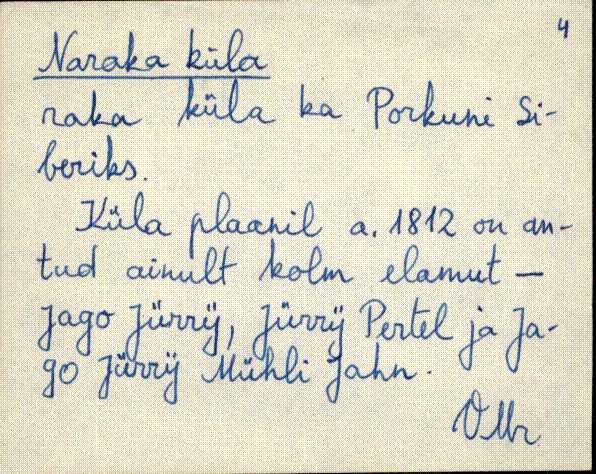 4
Naraka küla
raka küla ka Porkuni Si-
beriks.
Küla plaanil a. 1812 on an-
tud ainult kolm elamut —
Jago Jürrÿ, Jürrÿ Pertel ja Ja-
go Jürrÿ Mühli Jahn.